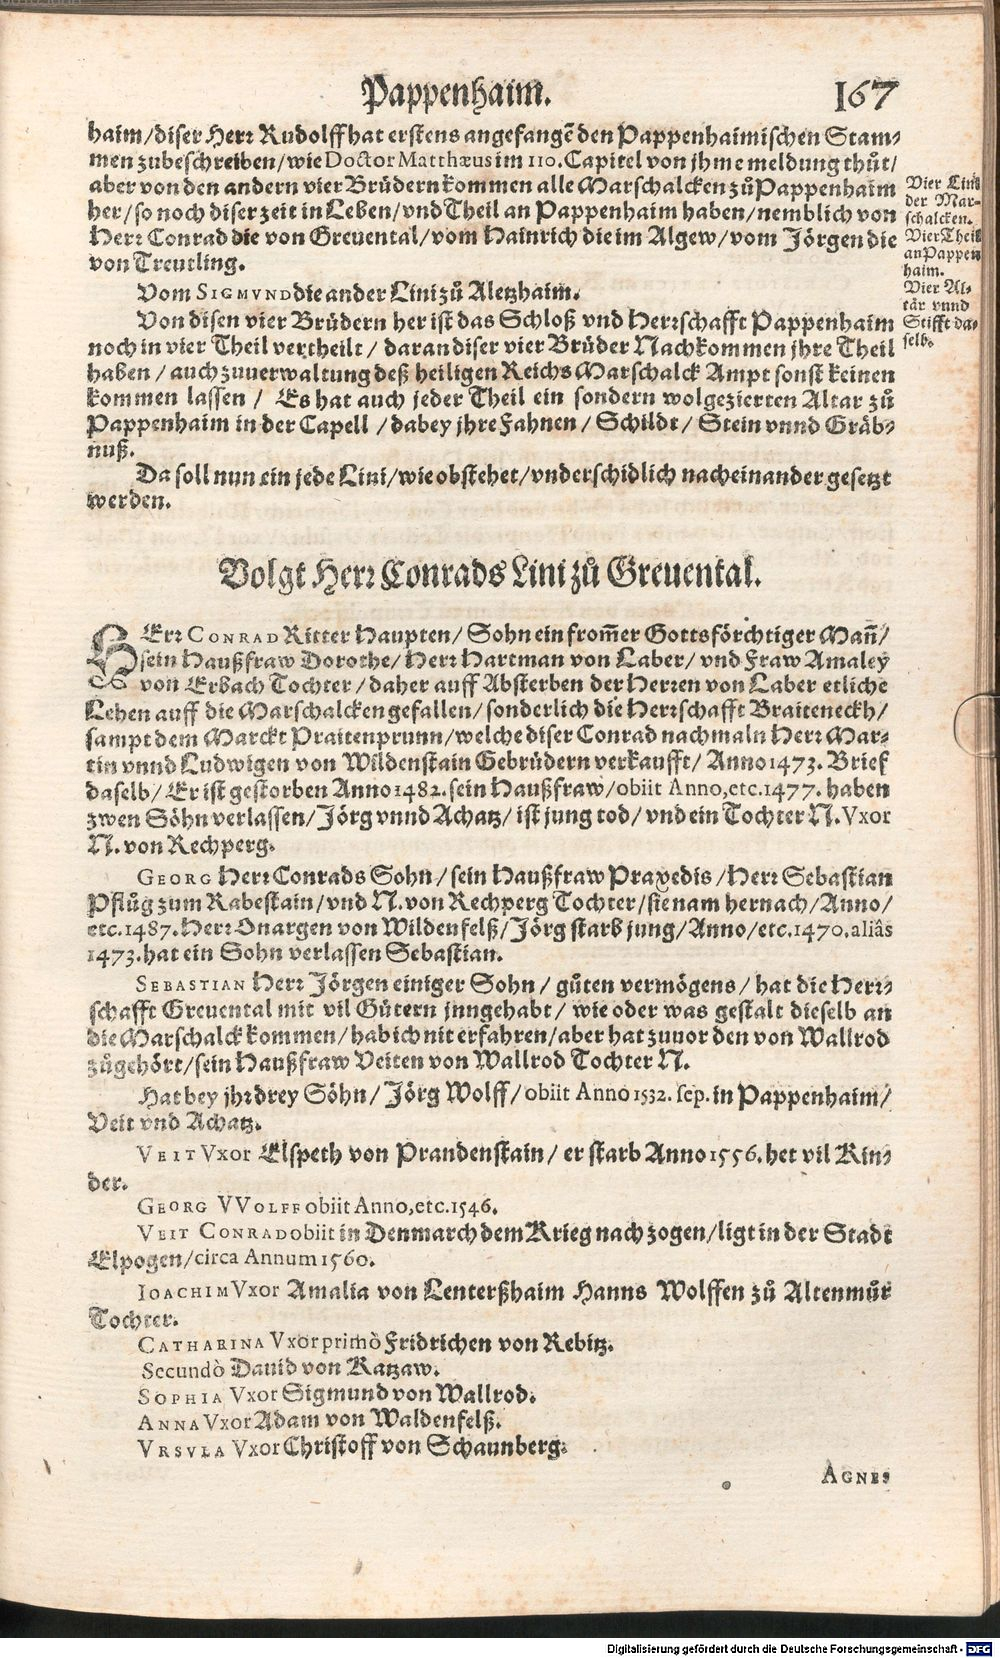 Pappenhaim. 167
haim/diser Herr Rudolff hat erstens angefangē den Pappenhaimischen Stam⸗
men zubeschreiben/wie Doctor Matthæus im 110. Capitel von jhme meldung thůt/
aber von den andern vier Brüdern kommen alle Marschalcken zů Pappenhaim
her/so noch diser zeit in Leben/vnd Theil an Pappenhaim haben/nemblich von
Herr Conrad die von Greuental/vom Hainrich die im Algew/vom Jörgen die
von Treutling.
Vier Lini
der Mar⸗
schalcken.
Vier Theil
an Pappen
haim.
Vier Al⸗
tär vnnd
Stifft da⸗
selb.
Vom SIGMVND die ander Lini zů Aletzhaim.
Von disen vier Brüdern her ist das Schloß vnd Herrschafft Pappenhaim
noch in vier Theil vertheilt / daran diser vier Brüder Nachkommen jhre Theil
haben / auch zuuerwaltung deß heiligen Reichs Marschalck Ampt sonst keinen
kommen lassen / Es hat auch jeder Theil ein sondern wolgezierten Altar zů
Pappenhaim in der Capell / dabey jhre Fahnen / Schildt / Stein vnnd Gräb⸗
nuß.
Da soll nun ein jede Lini/wie obstehet/vnderschidlich nacheinander gesetzt
werden.
Volgt Herr Conrads Lini zů Greuental.
HErr CONRAD Ritter Haupten/ Sohn ein from̄er Gottsförchtiger Mañ/
sein Haußfraw Dorothe/ Herr Hartman von Laber/ vnd Fraw Amaley
von Erbach Tochter / daher auff Absterben der Herren von Laber etliche
Lehen auff die Marschalcken gefallen/ sonderlich die Herrschafft Braiteneckh/
sampt dem Marckt Praitenprunn/welche diser Conrad nachmaln Herr Mar⸗
tin vnnd Ludwigen von Wildenstain Gebrüdern verkaufft/ Anno 1473. Brief
daselb/ Er ist gestorben Anno 1482. sein Haußfraw/obiit Anno,etc.1477. haben
zwen Söhn verlassen/ Jörg vnnd Achatz/ ist jung tod/ vnd ein Tochter N. Vxor
N. von Rechperg.
GEORG Herr Conrads Sohn/ sein Haußfraw Praxedis /Herr Sebastian
Pflůg zum Rabestain/ vnd N. von Rechperg Tochter/sie nam hernach/Anno/
etc.1487. Herr Vnargen von Wildenfelß/Jörg starb jung/Anno/etc.1470.aliâs
1473. hat ein Sohn verlassen Sebastian.
SEBASTIAN Herr Jörgen einiger Sohn/ gůten vermögens/ hat die Herr⸗
schafft Greuental mit vil Gütern jnngehabt/ wie oder was gestalt dieselb an
die Marschalck kommen/ hab ich nit erfahren/aber hat zuuor den von Wallrod
zůgehört/sein Haußfraw Veiten von Wallrod Tochter N.
Hat bey jhr drey Söhn/ Jörg Wolff/ obiit Anno 1532. sep. in Pappenhaim/
Veit vnd Achatz.
VEIT Vxor Elspeth von Prandenstain/ er starb Anno 1556. het vil Kin⸗
der.
GEORG VVOLFF obiit Anno,etc.1546.
VEIT CONRAD obiit in Denmarch dem Krieg nach zogen/ligt in der Stadt
Elpogen/circa Annum 1560.
IOACHIM Vxor Amalia von Lenterßhaim Hanns Wolffen zů Altenmůr
Tochter.
CATHARINA Vxor primò Fridrichen von Rebitz.
Secundò Dauid von Katzaw.
SOPHIA Vxor Sigmund von Wallrod.
ANNA Vxor Adam von Waldenfelß.
VRSVLA Vxor Christoff von Schaunberg.
AGNES
Digitalisierung gefördert durch die Deutsche Forschungsgemeinschaft - DFG